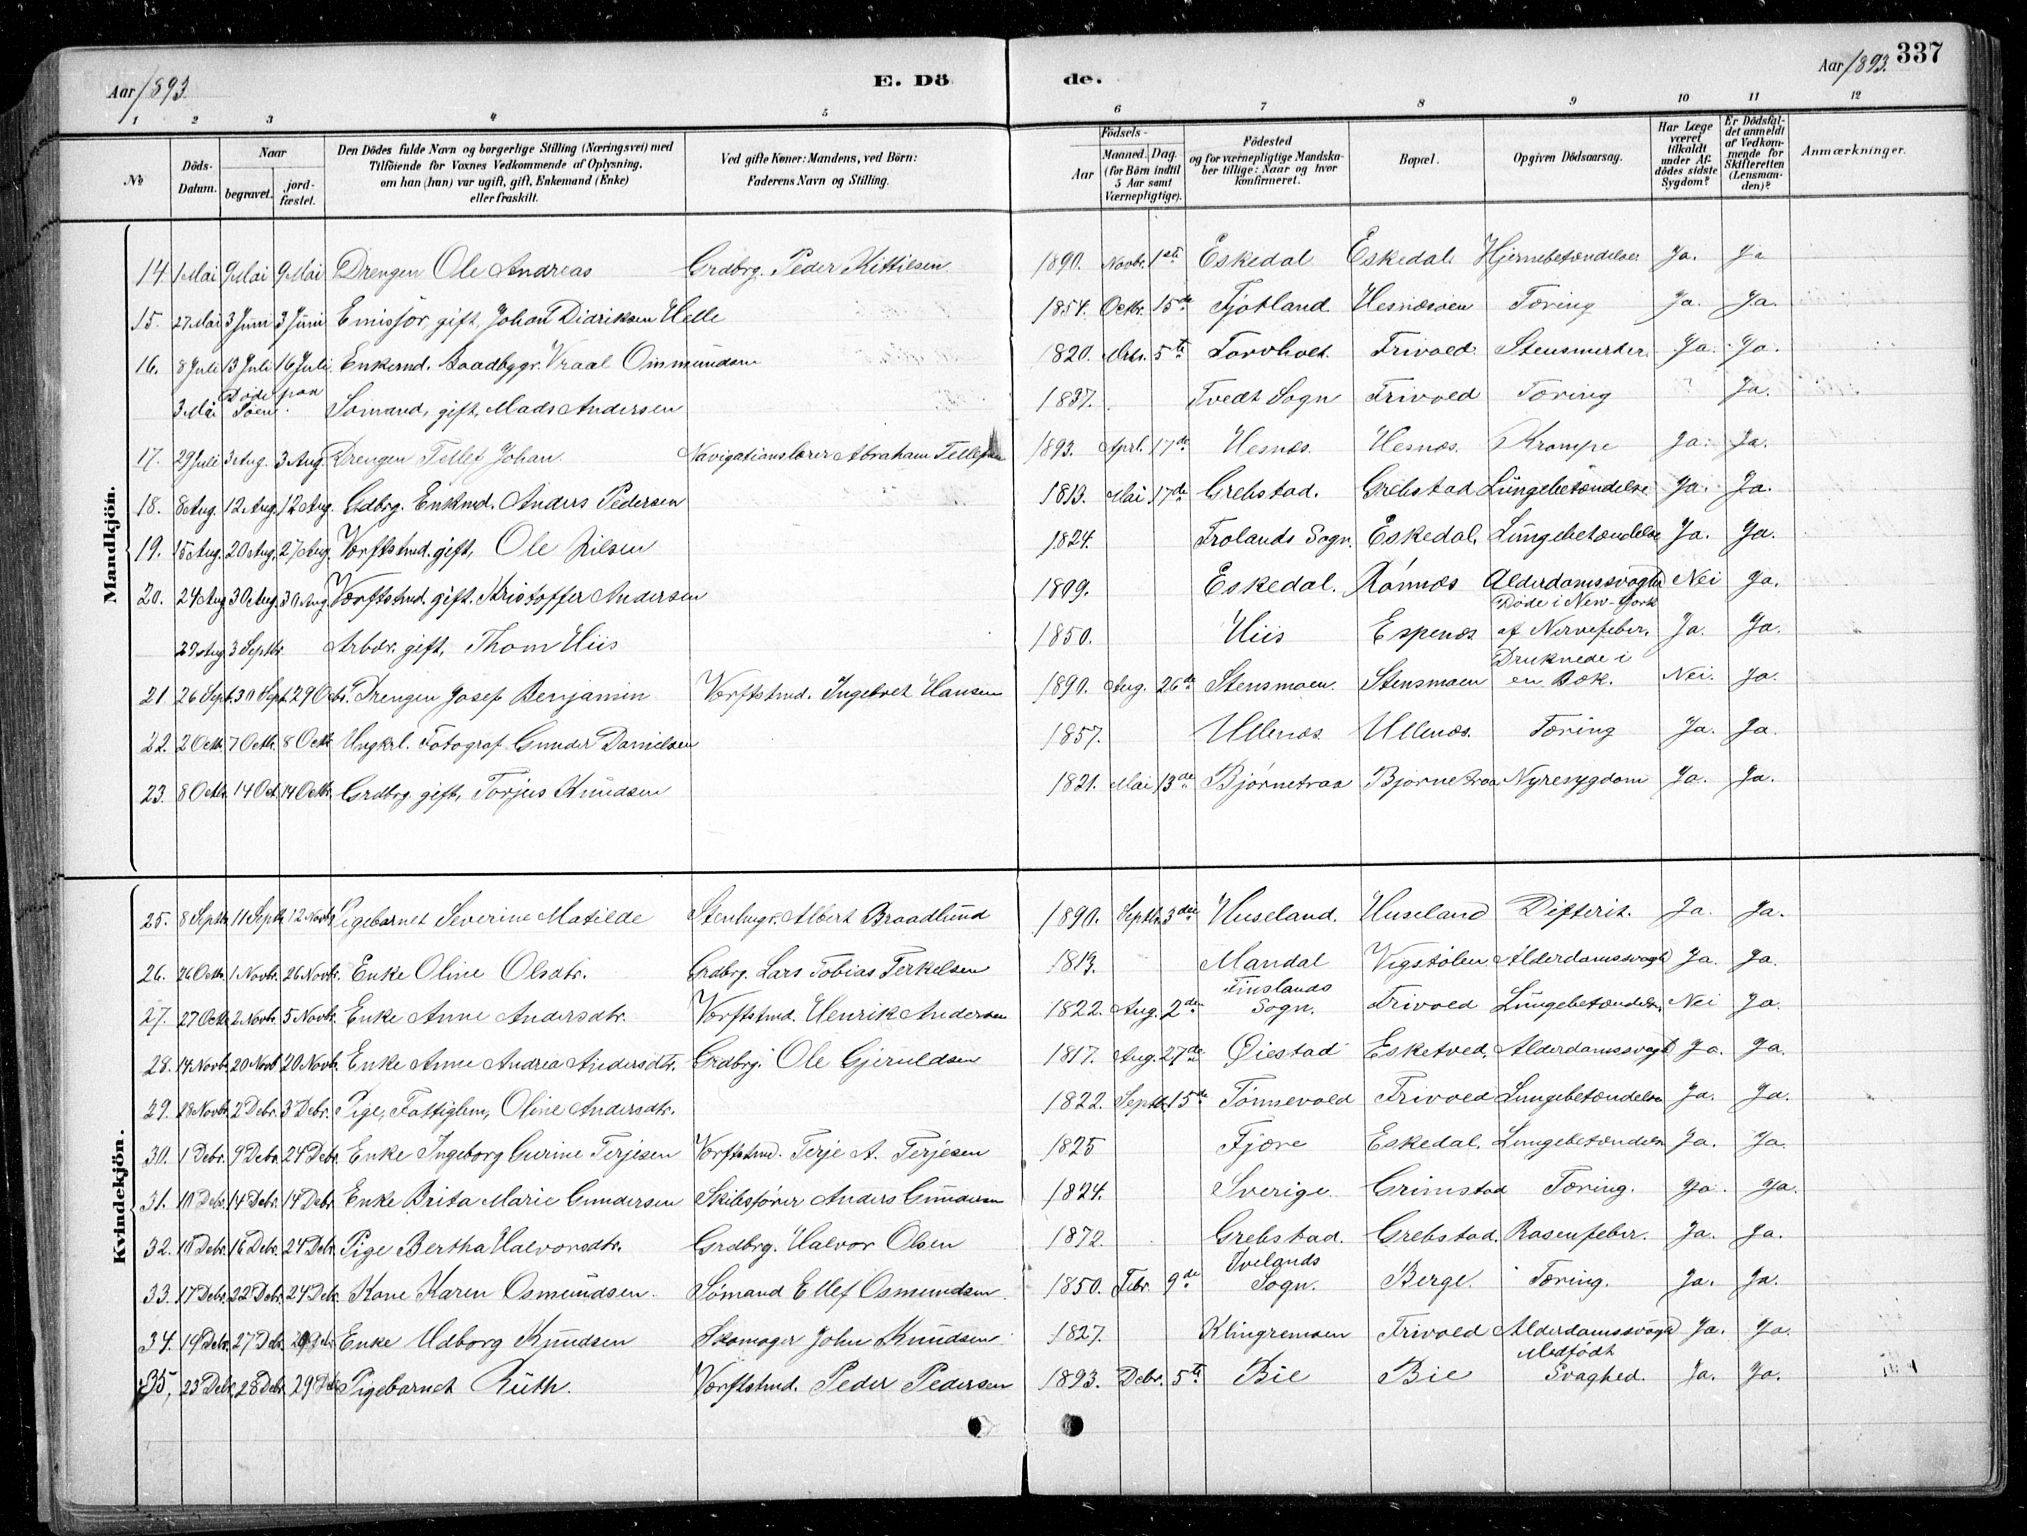 337
Aar 1893. E. Dö de. Aar 1893.
1 2 3 4 5 6 7 8 9 10 11 12
No Döds-Datum. Naar begravet. jord-fæstet. Den Dödes fulde Navn og borgerlige Stilling (Næringsvei) med Tilföiende for Voxnes Vedkommende af Oplysning, om han (hun) var ugift, gift, Enkemand (Enke) eller fraskilt. Ved gifte Koner: Mandens, ved Börn: Faderens Navn og Stilling. Födsels- Aar Maaned. Dag. (for Börn indtil 5 Aar samt Værnepligtige). Födested og for værnepligtige Mandskaber tillige: Naar og hvor konfirmeret. Bopæl. Opgiven Dödsaarsag. Har Læge været tilkaldt under Afdödes sidste Sygdom? Er Dödsfaldet anmeldt af Vedkommende for Skifteretten (Lensmanden)? Anmærkninger.
Mandkjön.
14. 1 Mai 9 Mai 9 Mai Drengen Ole Andreas Grdbrg. Peder Kittilsen 1890. Novbr. 1ste Eskedal Eskedal. Hjernebetændelse Ja. Ja
15. 27 Mai 3 Juni 3 Juni Emissør, gift, Johan Didriksen Helle 1854. Octbr. 15de Fjotland Hesnæsøen Tæring Ja. Ja.
16. 8 Juli 13 Juli 16 Juli Enkemd. Baadbygr. Vraal Ommundsen 1820. 5te Torvholt. Frivold. Stensmerter. Ja. Ja.
3 Mai Døde paa Søen. Sømand, gift, Mads Andersen 1837. Tvedt Sogn Frivold Tæring ? Ja.
17. 29 Juli 3 Aug. 3 Aug. Drengen Tellef Johan. Navigationslærer Abraham Tellefsen 1893. Aprl. 17de Hesnæs. Hesnæs. Krampe Ja. Ja.
18. 8 Aug. 12 Aug. 12 Aug. Grdbrg. Enkmd. Anders Pedersen 1813. Mai 17de Grebstad. Grebstad Lungebetændelse Ja. Ja.
19. 15 Aug. 20 Aug. 27 Aug. Værftstmd. gift, Ole Nilsen 1824. Frolands Sogn. Eskedal. Lungebetændelse Ja. Ja.
20. 24 Aug 30 Aug. 30 Aug. Værftstmd. gift. Kristoffer Andersen 1809. Eskedal. Rønnæs Alderdomssvaghed Nei Ja.
27 Aug 3 Septbr. Arbdr. gift, Thom Hiis 1850. Hiis Espenæs Døde i New-York af Nervefeber. Ja. Ja.
21. 26 Sept. 30 Sept. 29 Octbr. Drengen Josef Benjamin Værftstmd. Ingebret Hansen 1890. Aug. 26de Stensmoen. Stensmoen Druknede i en Bæk. Nei. Ja.
22. 2 Octb. 7 Octb. 8 Octb Ungkrl. Fotograf Gunder Danielsen 1857. Ullenæs. Ullenæs. Tæring Ja. Ja.
23. 8 Octb. 14 Oct. 14 Octbr. Grdbrg. gift, Torjus Knudsen 1821. Mai 13de Bjørnetraa Bjørnetraa Nyresygdom Ja. Ja.
Kvindekjön.
25. 8 Septb. 11 Septb. 12 Novbr. Pigebarnet Severine Matilde Stenhugr. Albert Braadlund 1890. Septb. 3die Huseland. Huseland Difterit. Ja. Ja.
26. 26 Octb. 1 Novbr. 26 Novbr. Enke Oline Olsdtr. Grdbrg. Lars Tobias Terkelsen 1813. Mandal Vigstølen Alderdomssvaghd Ja. Ja.
27. 27 Octb 2 Novbr. 5 Novbr. Enke Anne Andersdtr. Værftstmd. Henrik Andersen 1822. Aug. 2den Finslands Sogn. Frivold Lungebetændelse. Nei Ja.
28. 14 Novbr. 20 Novb 20 Novbr. Enke Anne Andrea Andersdtr. Grdbrg. Ole Gjeruldsen 1817. Aug. 27de Øiestad Esketved. Alderdomssvagh Ja. Ja.
29. 28 Novbr. 2 Debr. 3 Debr. Pige, Fattiglm, Oline Andersdtr. 1822. Septb. 15de Tønnevold Frivold Lungebetændelse Ja. Ja.
30. 1 Debr. 9 Debr. 24 Debr. Enke Ingeborg Gurine Terjesen Værftstmd. Terje A. Terjesen 1825 Fjære Eskedal. Lungebetændelse Ja. Ja.
31. 10 Debr. 14 Debr. 14 Debr. Enke Brita Marie Gundersen Skibsfører Anders Gundersen 1824. Sverige. Grimstad Tæring. Ja. Ja.
32. 10 Debr. 16 Debr. 24 Debr. Pige Bertha Halvorsdtr. Grdbrg. Halvor Olsen 1872. Grebstad. Grebstad. Rosenfeber. Ja. Ja.
33. 17 Debr. 22 Debr. 24 Debr. Kone Karen Osmundsen. Sømand Ellef Osmundsen 1850. Febr. 9de Ivelands Sogn. Berge. Tæring. Ja. Ja.
34. 19 Debr. 27 Debr. 29 Debr. Enke Udborg Knudsen Skomager John Knudsen 1827. Klingremoen Frivold Alderdomssvaghd Ja. Ja.
35, 23 Debr. 28 Debr. 29 Debr. Pigebarnet Ruth. Værftstmd. Peder Pedersen 1893. Debr. 5te Bie Bie Medfødt Svaghed. Ja. Ja.